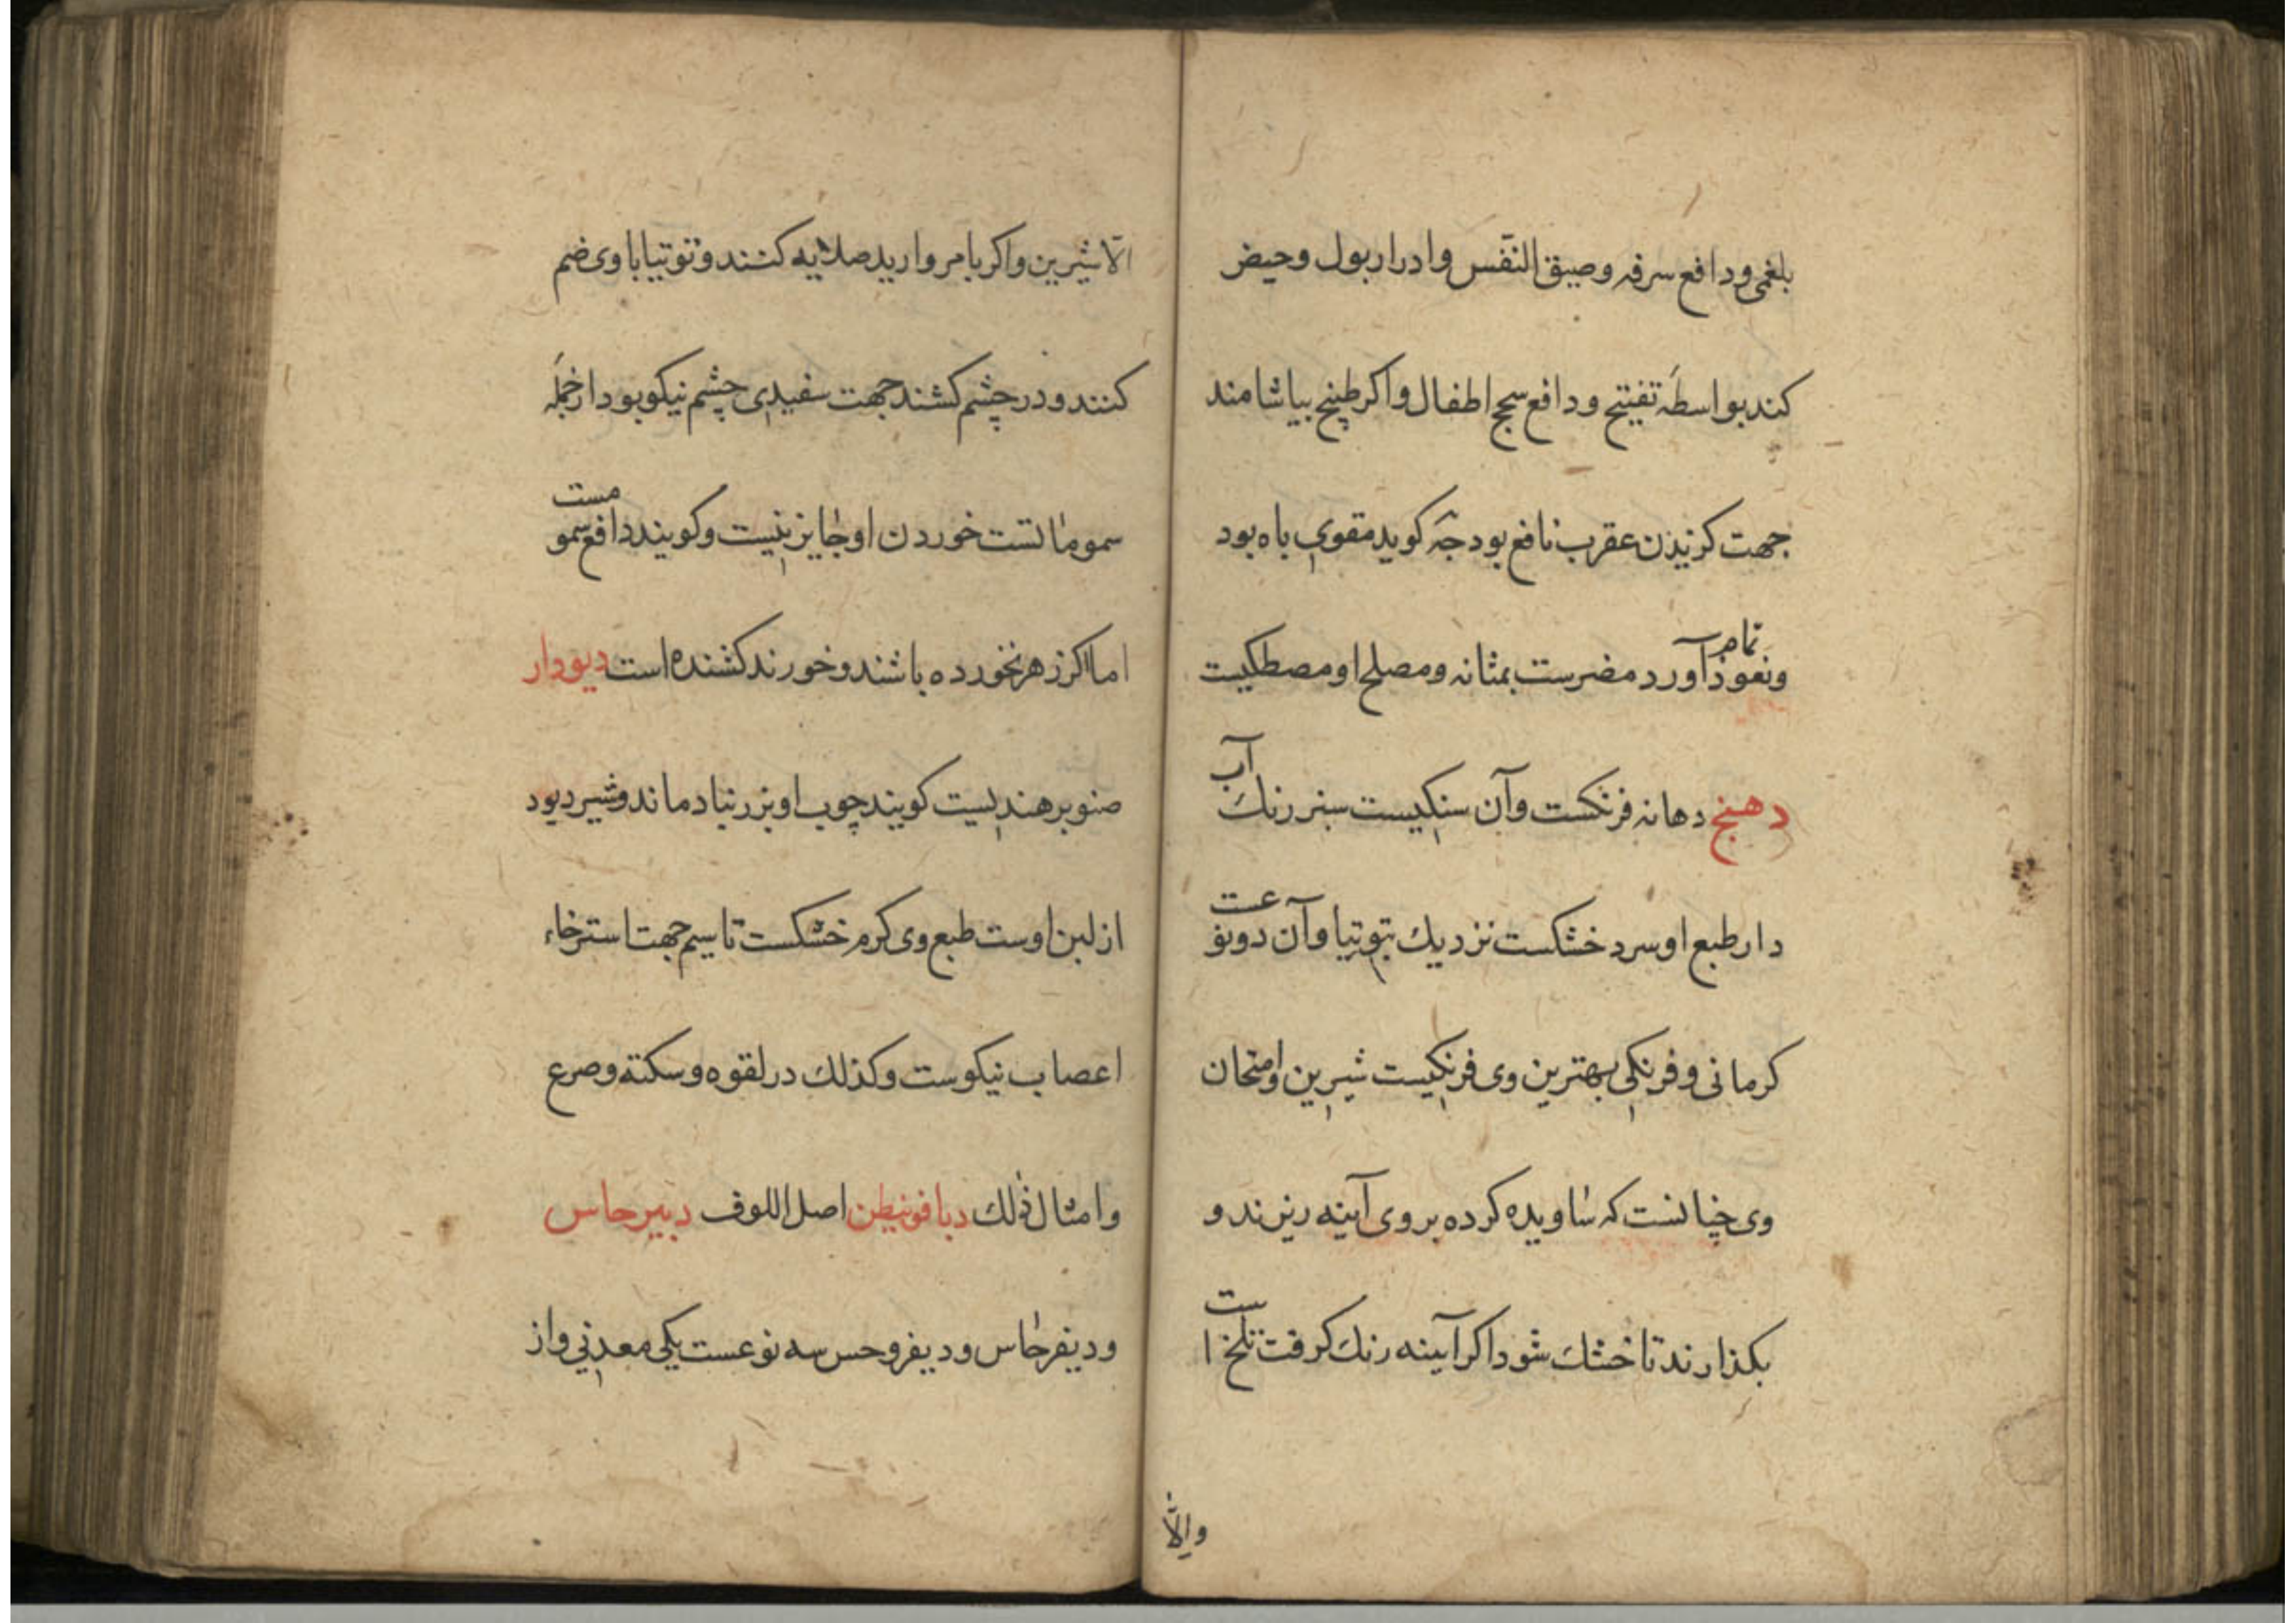 بلغمی ودافع سرفه وضیق النفس وادرار بول وحیض
کند بواسطه تفتیح ودافع سحج اطفال واکر طبیخ بیاشامند
جهت کزیدن عقرب نافع بود جهة کوید مقوی باه بود
ونعوذ تمام آورد مضرست بمثانه ومصلح او مصطکیست
دهنج دهانه فرنکست وآن سنکیست سبز رنك آب
دار طبع او سرد خشکست نزدیك بتوتیا وآن دو نوعست
کرمانی وفرنکی بهترین وی فرنکیست شیرین وامتحان
وی چنانست که ساویده کرده بر روی آینه ریزند و
بکذارند تا خشك شود اکر آیینه رنك کرفت تلخ است
والّا
الّا شیرین واکر با مروارید صلایه کنند وتوتیا با وی ضم
کنند ودر چشم کشند جهت سفیدی چشم نیکو بود از جمله
سموماتست خوردن او جایز نیست وکویند دافع سمومست
اما اکر زهر نخورده باشند وخورند کشنده است دیودار
صنوبر هندیست کویند چوب او بزرنباد ماند وشیر دیود
از لبن اوست طبع وی کرم خشکست تا سیم جهت استرخاء
اعصاب نیکوست وکذلك در لقوه وسکته وصرع
وامثال ذلك دیافونیطن اصل اللوف دبیرحاس
ودیفرحاس ودیفروحس سه نوعست یکی معدنی واز